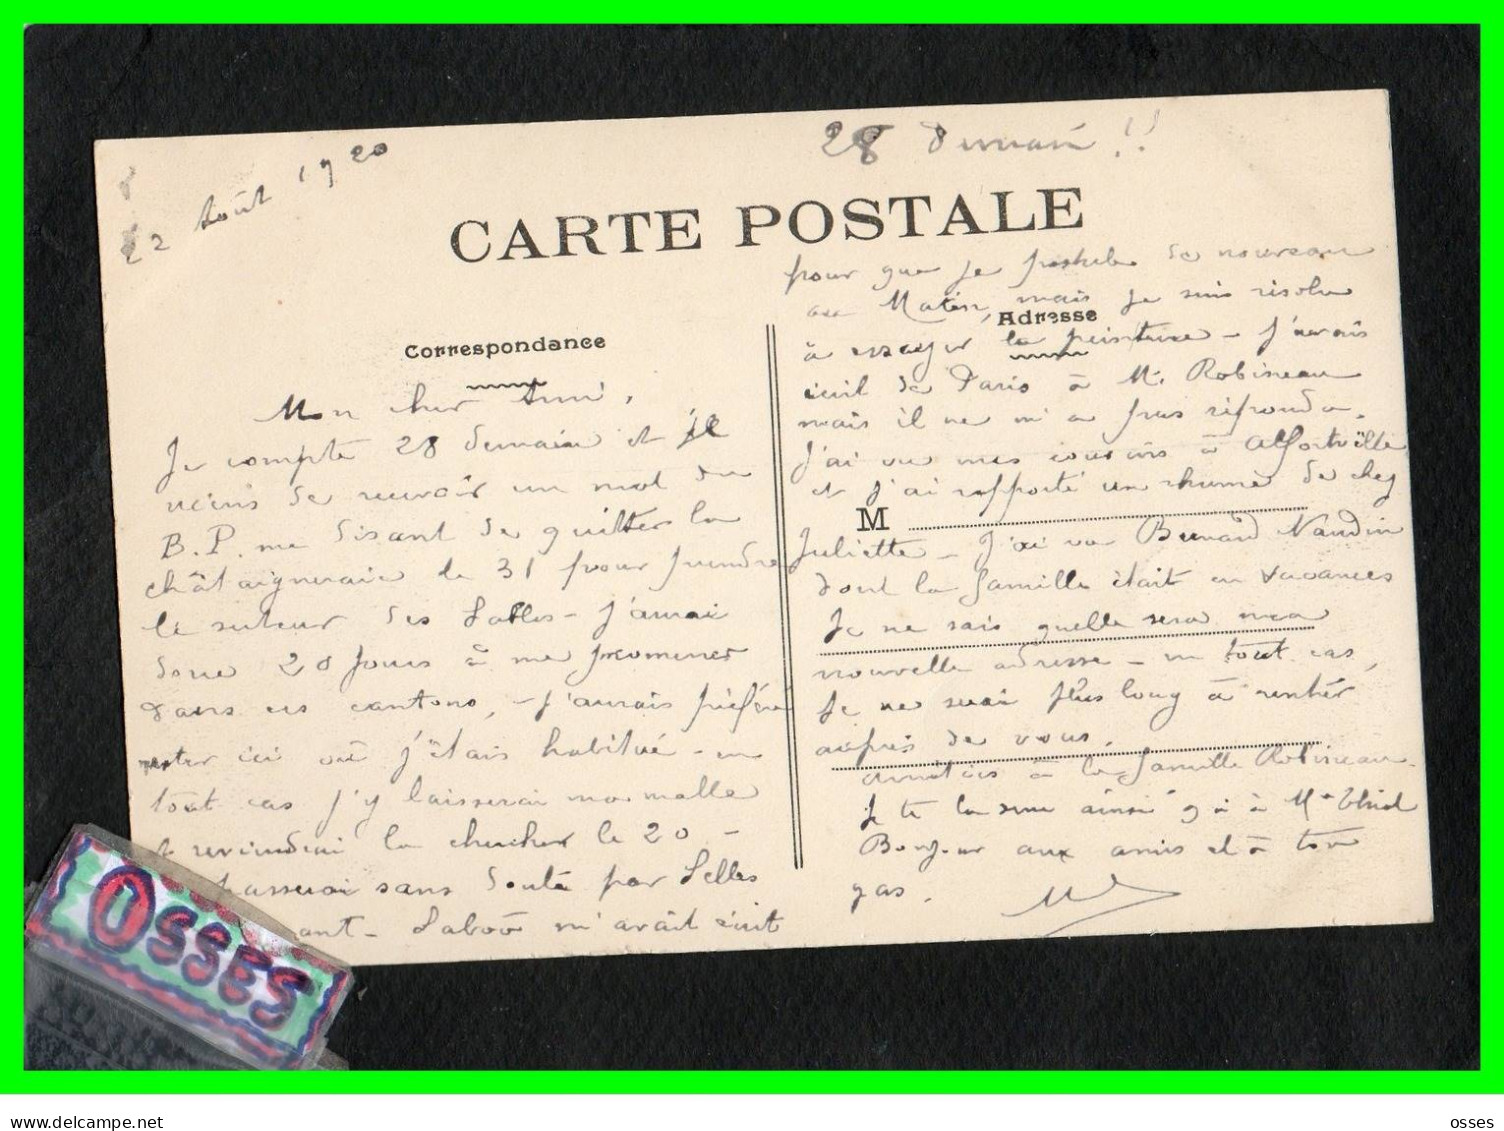 22 Août 1920
28 demain !!
CARTE POSTALE
Correspondance
Mon cher Ami,
Je compte 28 demain et je
viens de recevoir un mot du
B.P. me disant de quitter la
châtaigneraie le 31 pour prendre
le secteur des Sables - J'aurai
donc 20 jours à me promener
dans ces cantons, - J'aurais préféré
rester ici où j'étais habitué - en
tout cas j'y laisserai ma malle
et reviendrai la chercher le 20 -
passerai sans doute par Selles
ant - m'avait écrit
pour que je postule de nouveau
au Matin, mais je suis résolu
Adresse
à essayer la peinture - J'avais
écrit de Paris à M. Robineau
mais il ne m'a pas répondu.
J'ai vu mes cousins à Alfortville
et j'ai rapporté un rhume de chez
M
Juliette - J'ai vu Bernard Naudin
dont la famille était en vacances
Je ne sais quelle sera ma
nouvelle adresse - en tout cas,
Je ne serai plus long à rentrer
auprès de vous.
Amitiés à la famille Robineau
Je te la serre ainsi qu'à M.
Bonjour aux amis et à ton
gas.
OSSES
osses
delcampe.net